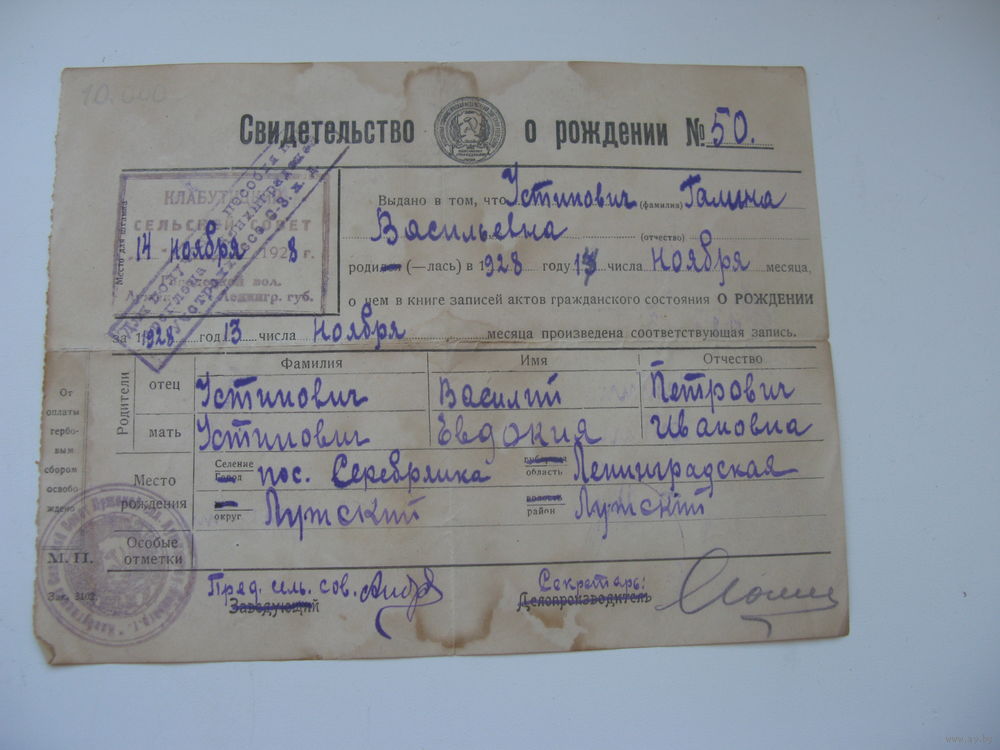 10.000
Свидетельство о рождении № 50.
Место для штампа
КЛАБУТИЦКИЙ
СЕЛЬСКИЙ СОВЕТ
14 ноября 1928 г.
вол.
Ленингр. губ.
Выдано в том, что Устинович (фамилия) Галина
Васильевна (отчество)
родился (—лась) в 1928 году 13 числа ноября месяца,
о чем в книге записей актов гражданского состояния О РОЖДЕНИИ
за 1928 год 13 числа ноября месяца произведена соответствующая запись.
Родители
Фамилия Имя Отчество
отец Устинович Василий Петрович
мать Устинович Евдокия Ивановна
От оплаты гербовым сбором освобождено
Место рождения
Селение Город пос. Серебрянка губерния область Ленинградская
округ Лужский волость район Лужский
М. П. Особые отметки
Зак. 3102.
Пред. сел. сов. Секретарь:
Заведующий Делопроизводитель
www.ay.by